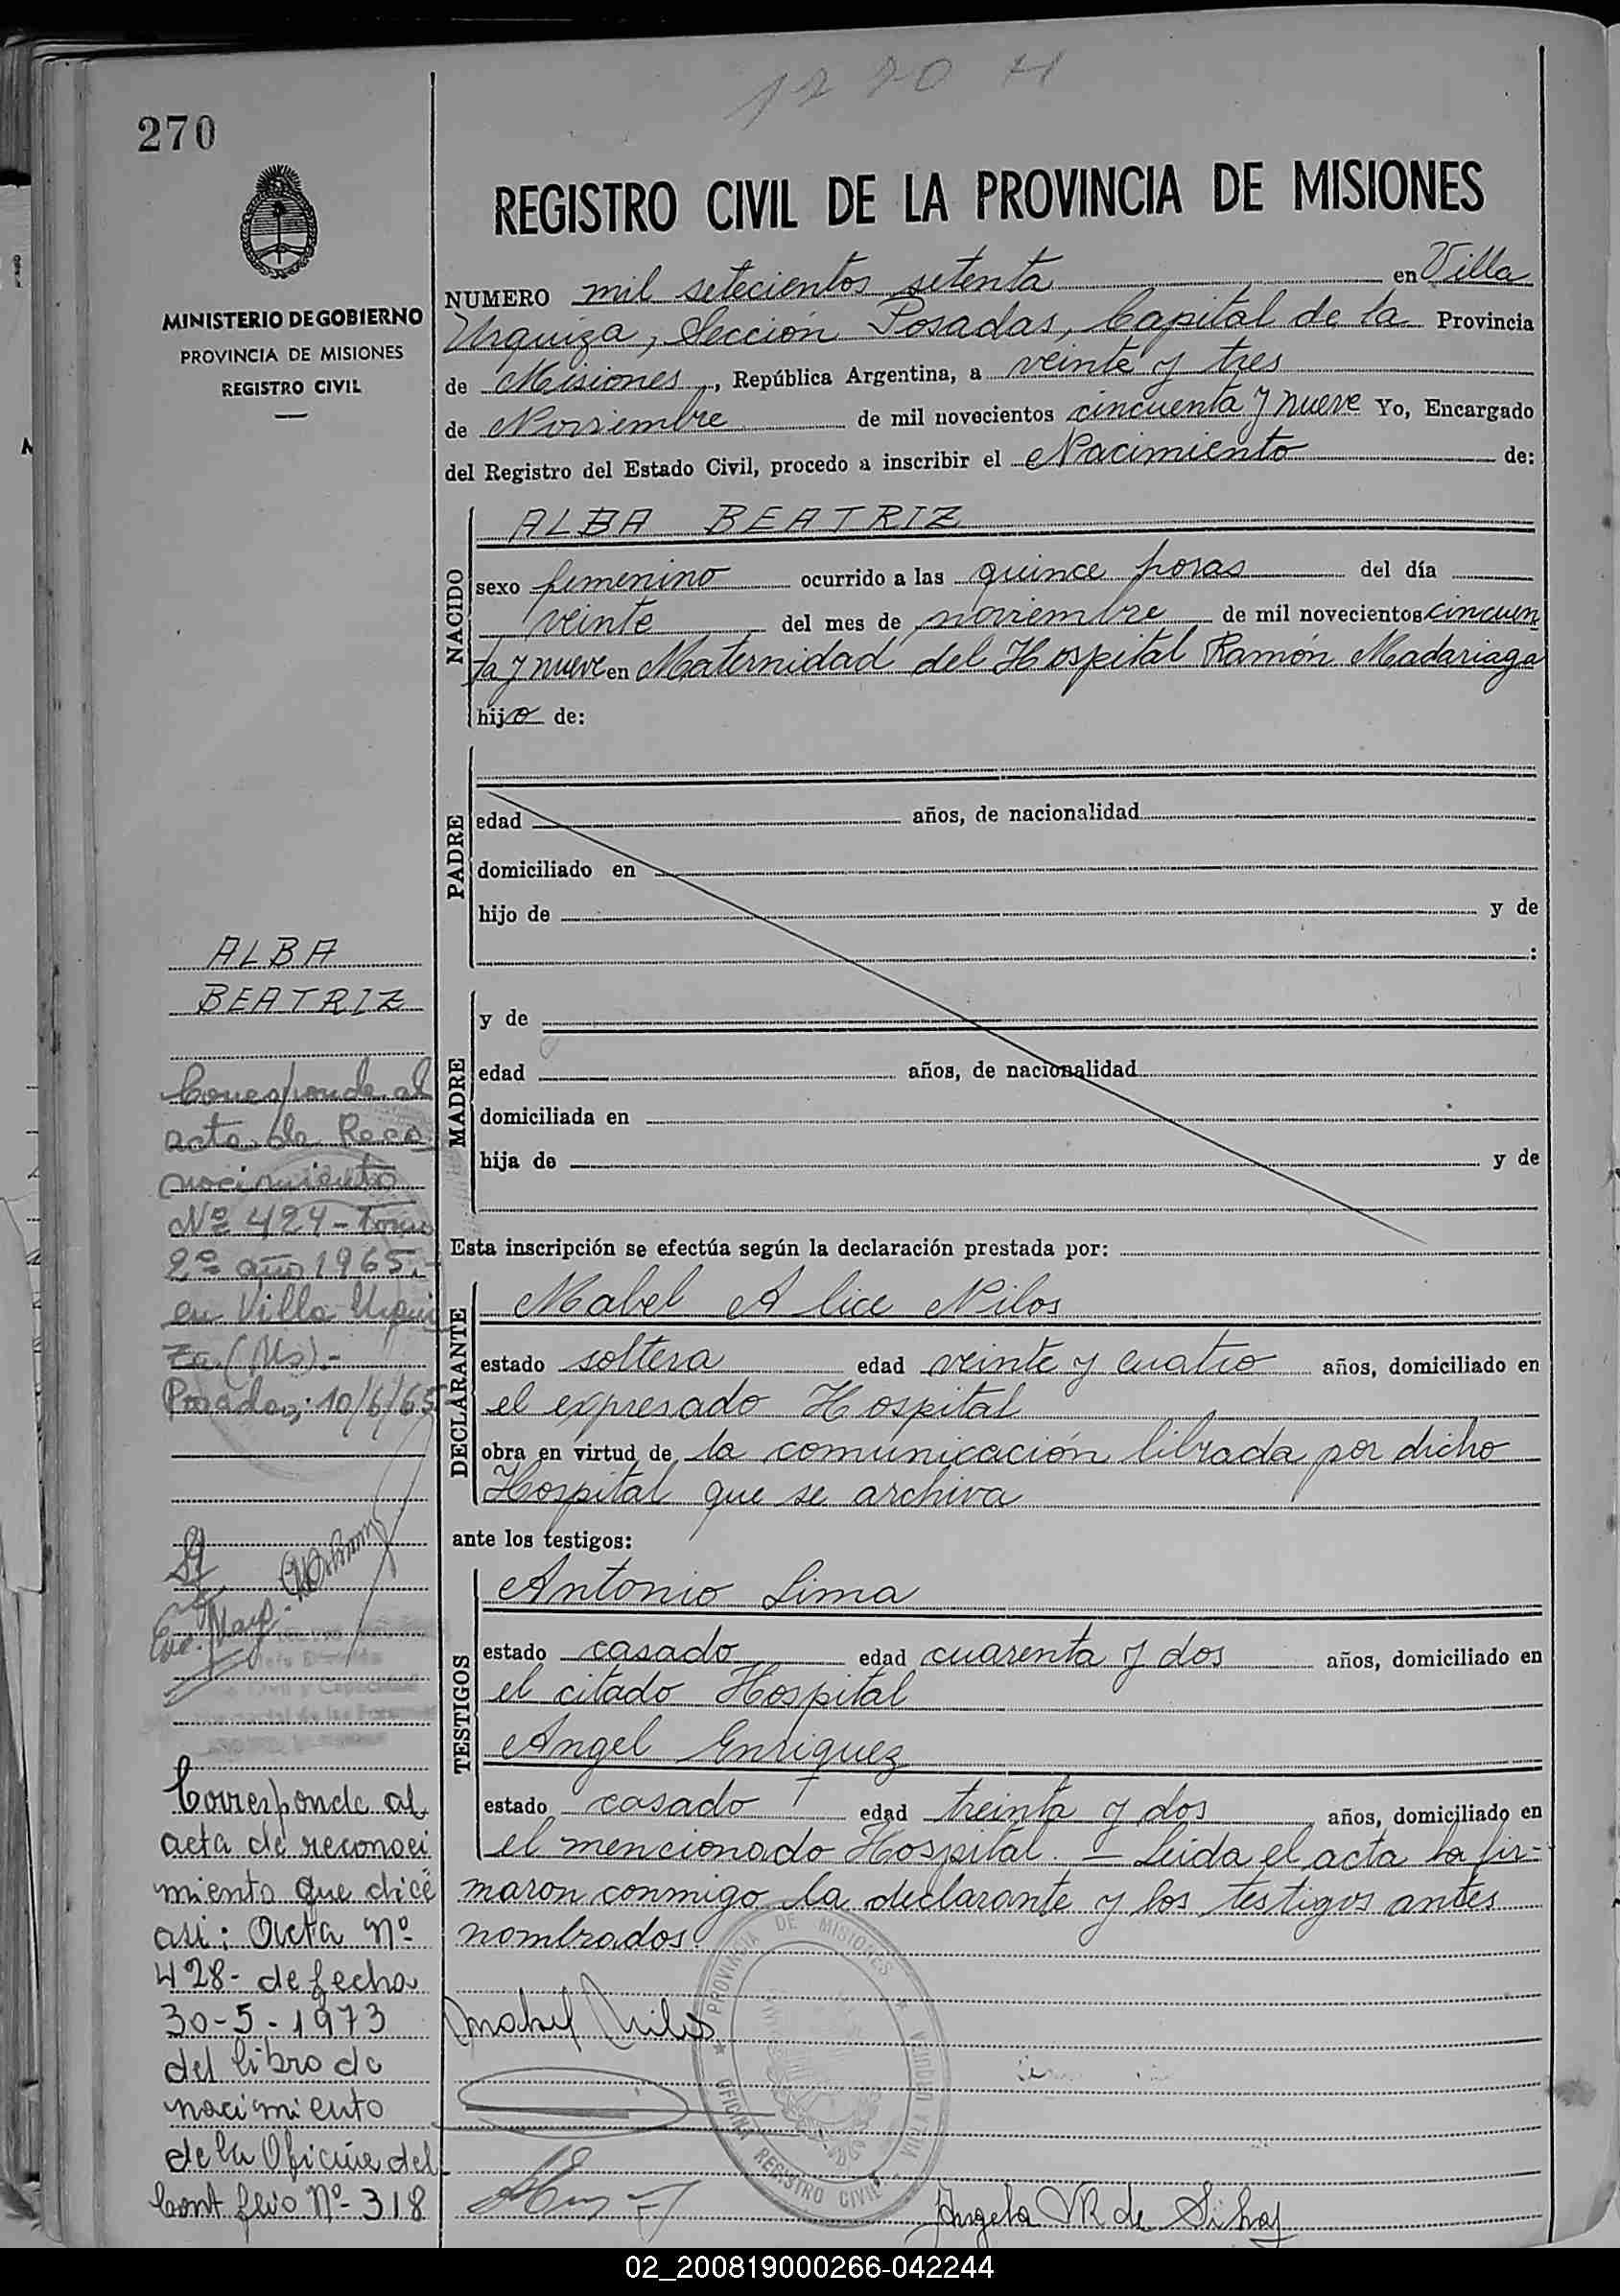 270
MINISTERIO DE GOBIERNO
PROVINCIA DE MISIONES
REGISTRO CIVIL
REGISTRO CIVIL DE LA PROVINCIA DE MISIONES
NUMERO mil setecientos setenta en Villa
Urquiza, Sección Posadas, Capital de la Provincia
de Misiones, República Argentina, a veinte y tres
de Noviembre de mil novecientos cincuenta y nueve Yo, Encargado
del Registro del Estado Civil, procedo a inscribir el Nacimiento de:
NACIDO
ALBA BEATRIZ
sexo femenino ocurrido a las quince horas del día
veinte del mes de noviembre de mil novecientos cincuen
ta y nueve en Maternidad del Hospital Ramón Madariaga
hija de:
PADRE
edad años, de nacionalidad
domiciliado en
hijo de y de
:
MADRE
y de
edad años, de nacionalidad
domiciliada en
hija de y de
Esta inscripción se efectúa según la declaración prestada por:
DECLARANTE
Mabel Alice Nilos
estado soltera edad veinte y cuatro años, domiciliado en
el expresado Hospital
obra en virtud de la comunicación librada por dicho
Hospital que se archiva
ante los testigos:
TESTIGOS
Antonio Lima
estado casado edad cuarenta y dos años, domiciliado en
el citado Hospital
Angel Enriquez
estado casado edad treinta y dos años, domiciliado en
el mencionado Hospital. - Leida el acta la fir-
maron conmigo la declarante y los testigos antes
nombrados.
Mabel Nilos
PROVINCIA DE MISIONES
OFICINA REGISTRO CIVIL
Angela VR de Silva
ALBA
BEATRIZ
Corresponde al
acta de Reco
nocimiento
Nº 424 - Tomo
2º año 1965.-
en Villa Urqui
za. (Ms).-
Posadas, 10/6/65
Corresponde al
acta de reconoci
miento que dice
asi: Acta Nº
428- de fecha
30-5-1973
del libro de
nacimiento
de la Oficina del
Nº- 318
02_200819000266-042244